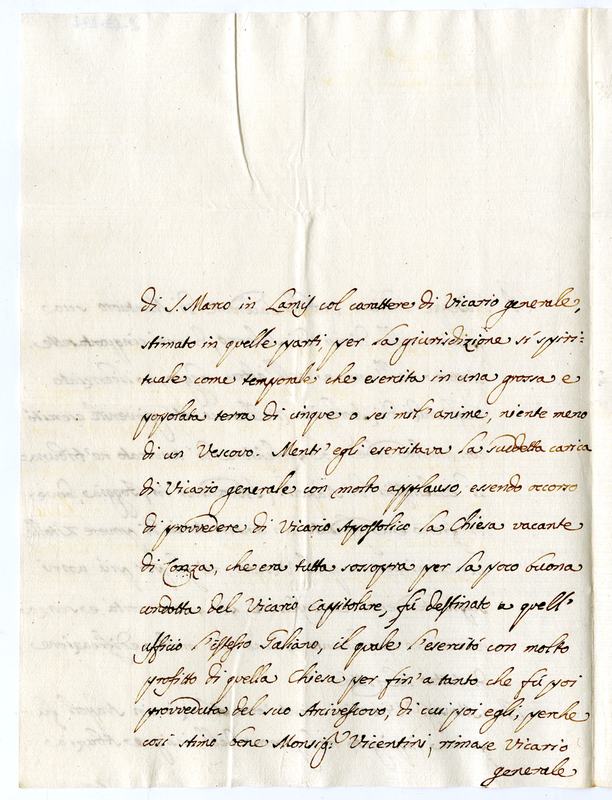 di S. Marco in Lamis col carattere di Vicario generale,
stimato in quelle parti, per la giurisdizione sì spiri=
tuale come temporale che esercita in una grossa e
popolata terra di cinque o sei mil' anime, niente meno
di un Vescovo. Mentr' egli esercitava la suddetta carica
di Vicario generale con molto applauso, essendo occorso
di provvedere di Vicario Apostolico la Chiesa vacante
di Conza, che era tutta sossopra per la poco buona
condotta del Vicario Capitolare, fù destinato a quell'
ufficio l'istesso Galiano, il quale l'esercitò con molto
profitto di quella Chiesa per fin' a tanto che fù poi
provveduta del suo Arcivescovo, di cui poi egli, perche
così stimò bene Monsig.r Vicentini, rimase Vicario
generale